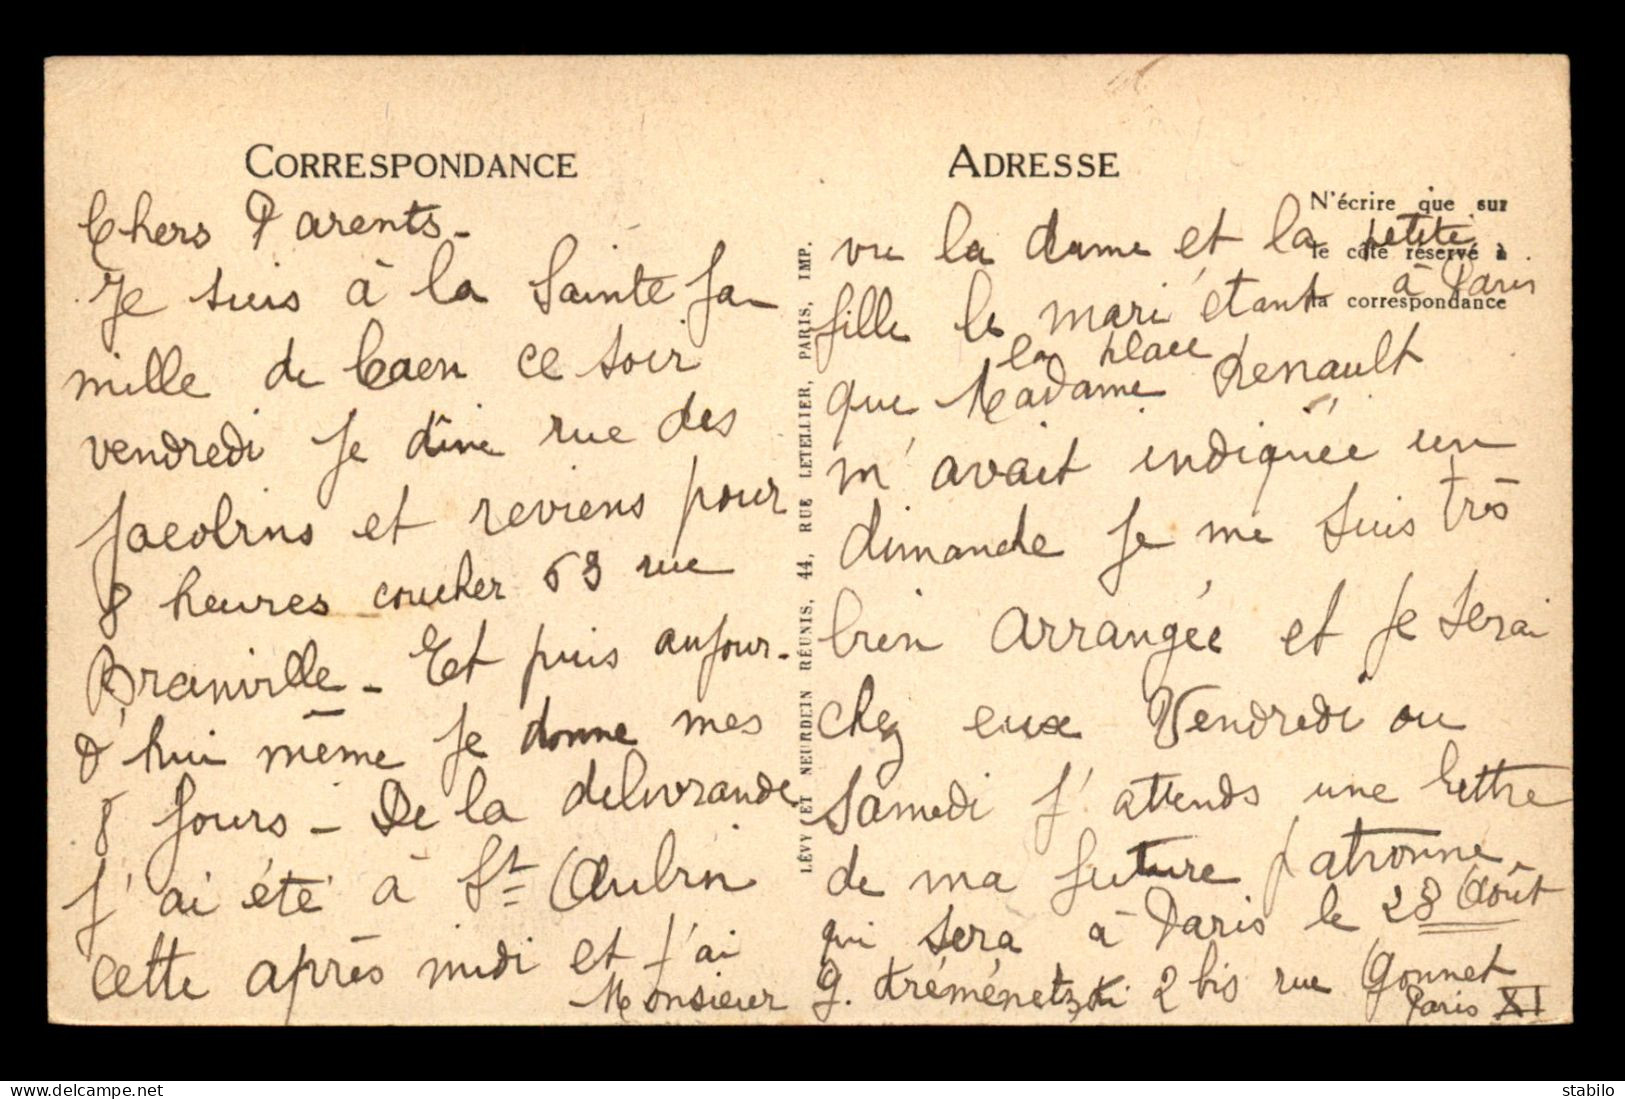 CORRESPONDANCE
Chers Parents -
Je suis à la Sainte Fa-
mille de Caen ce soir
vendredi je dîne rue des
Jacobins et reviens pour
8 heures coucher 63 rue
Branville - Et puis aujour-
d'hui même je donne mes
8 jours - De la délivrande
j'ai été à St Aubin
cette après midi et j'ai
LÉVY ET NEURDEIN RÉUNIS, 44, RUE LETELLIER, PARIS, IMP.
ADRESSE
N'écrire que sur
le côté réservé à
la correspondance
vu la dame et la petite
fille le mari étant à Paris
la place
que Madame Renault
m'avait indiquée un
dimanche je me suis très
bien arrangée et je serai
chez eux Vendredi ou
Samedi j'attends une lettre
de ma future patronne
qui sera à Paris le 28 Août
Monsieur G. Tréménetzki 2 bis rue Gonnet
Paris XI
stabilo